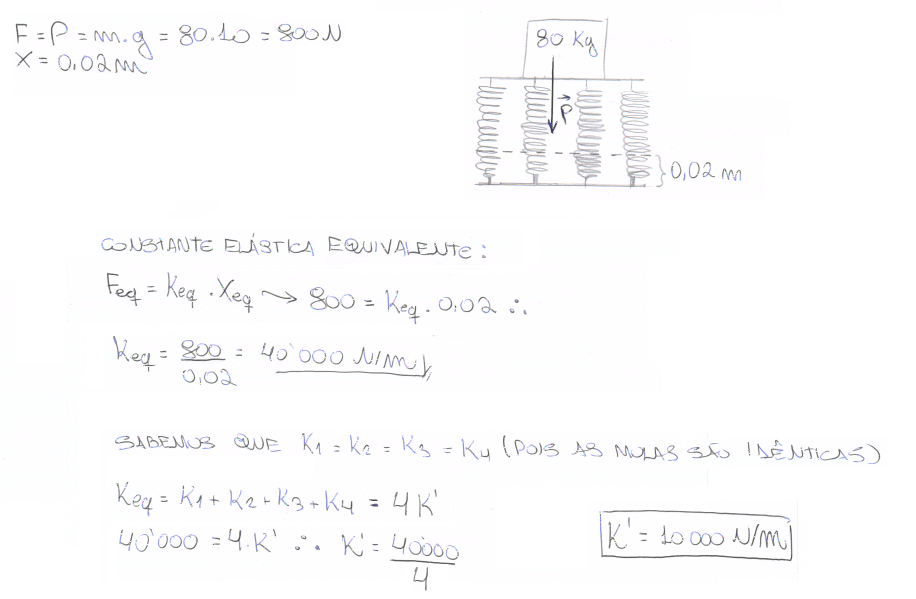 F = P = m.g = 80.10 = 800 N
X = 0,02 m
80 Kg
P
0,02 m
CONSTANTE ELÁSTICA EQUIVALENTE:
Feq = Keq . Xeq → 800 = Keq . 0,02 ∴
Keq = 800/0,02 = 40'000 N/m
SABEMOS QUE K1 = K2 = K3 = K4 (POIS AS MOLAS SÃO IDÊNTICAS)
Keq = K1 + K2 + K3 + K4 = 4K'
40'000 = 4.K' ∴ K' = 40000/4
K' = 10 000 N/m